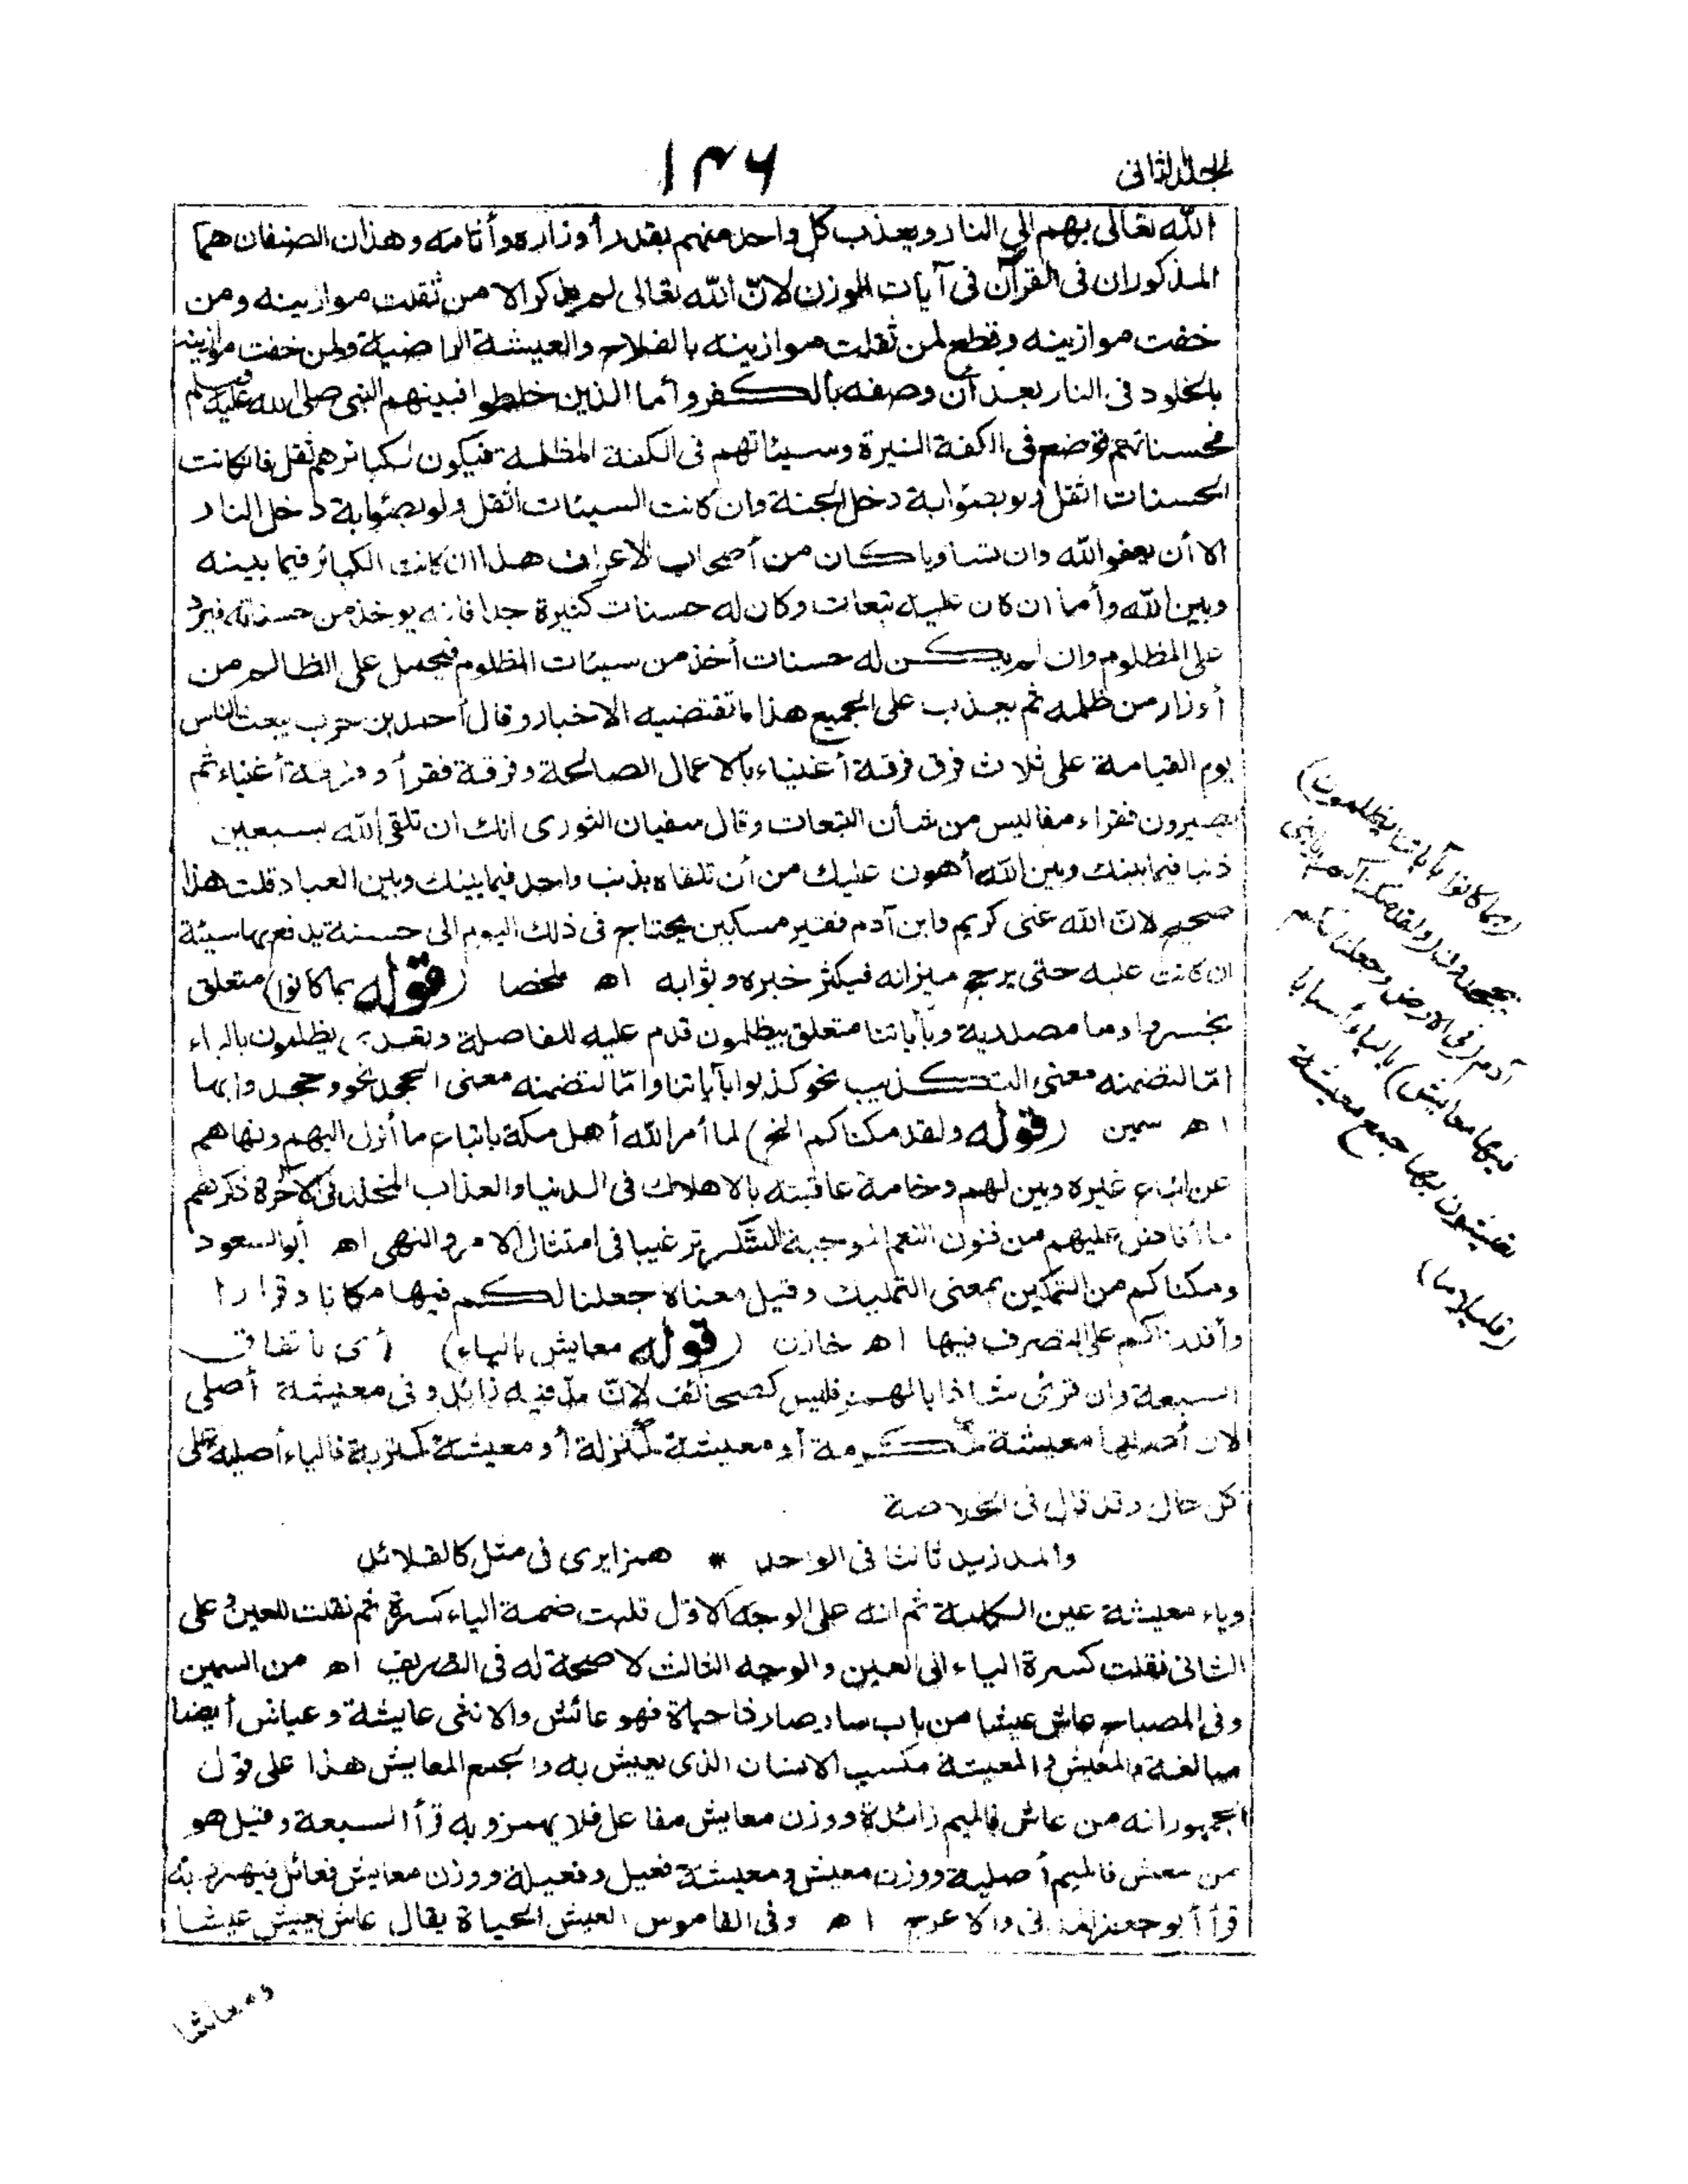 الجلد الثانى
١٣٦
الله تعالى بهم الى النار ويعذب كل واحد منهم بقدر أوزاره وأثامه وهذان الصنفان هما
المذكوران فى القرآن فى آيات الوزن لانّ الله تعالى لم يذكر الا من ثقلت موازينه ومن
خفت موازينه وقطع لمن ثقلت موازينه بالفلاح والعيشة الراضية ولمن خفت موازينه
بالخلود فى النار بعد أن وصفه بالكفر وأما الذين خلطوا فبينهم النبى صلى الله عليه وسلم
فحسناتهم توضع فى الكفة النيرة وسيئاتهم فى الكفة المظلمة فيكون لكبائرهم ثقل فان كانت
الحسنات اثقل ولو بصئوابة دخل الجنة وان كانت السيئات اثقل ولو بصئوابة دخل النار
الا أن يعفو الله وان تساويا كان من أصحاب الاعراف هذا ان كانت الكبائر فيما بينه
وبين الله وأما ان كان عليه تبعات وكان له حسنات كثيرة جدا فانه يوخذ من حسناته فيرد
على المظلوم وان لم يكن له حسنات أخذ من سيئات المظلوم فيحمل على الظالم من
أوزار من ظلمه ثم يعذب على الجميع هذا ما تقتضيه الاخبار وقال أحمد بن حرب يبعث الناس
يوم القيامة على ثلاث فرق فرقة أغنياء بالاعمال الصالحة وفرقة فقرأ وفرقة أغنياء ثم
يصيرون فقراء مفاليس من شأن التبعات وقال سفيان الثورى انك ان تلقى الله بسبعين
ذنبا فيما بينك وبين الله أهون عليك من أن تلقاه بذنب واحد فيما بينك وبين العباد قلت هذا
صحيح لانّ الله غنى كريم وابن آدم فقير مسكين يحتاج فى ذلك اليوم الى حسنة يدفع بها سيئة
ان كانت عليه حتى يرجح ميزانه فيكثر خيره وثوابه اه ملخصا (قوله بما كانوا) متعلق
بخسروا وما مصدرية وبآياتنا متعلق بيظلمون قدم عليه للفاصلة وتعدى يظلمون بالباء
امّا لتضمنه معنى التكذيب نحو كذبوا بآياتنا وامّا لتضمنه معنى الجحد نحو وجحدوا بها
اه سمين (قوله ولقد مكناكم الخ) لما أمر الله أهل مكة باتباع ما أنزل اليهم ونهاهم
عن اتباع غيره وبين لهم وخامة عاقبته بالاهلاك فى الدنيا والعذاب المخلد فى الآخرة ذكرهم
ما أفاض عليهم من فنون النعم الموجبة للشكر ترغيبا فى امتثال الامر والنهى اه أبو السعود
ومكناكم من التمكين بمعنى التمليك وقيل معناه جعلنا لكم فيها مكانا وقرارا
وأقدرناكم على التصرف فيها اه خازن (قوله معايش بالياء) أى باتفاق
السبعة وان قرئ شاذا بالهمز فليس كصحائف لانّ مدّ فيه زائد وفى معيشة أصلى
لان أصلها معيشة كمكرمة أو معيشة كمنزلة أو معيشة كمتربة فالياء أصلية على
كل حال وقد قال فى الخلاصة
والمد زيد ثالثا فى الواحد * همزا يرى فى مثل كالقلائد
وياء معيشة عين الكلمة ثم انه على الوجه الاوّل قلبت ضمة الياء كسرة ثم نقلت للعين وعلى
الثانى نقلت كسرة الياء الى العين والوجه الثالث لا صحة له فى التصريف اه من السمين
وفى المصباح عاش عيشا من باب سار صار ذا حياة فهو عائش والانثى عايشة وعياش أيضا
مبالغة والمعيش والمعيشة مكسب الانسان الذى يعيش به والجمع المعايش هذا على قول
الجمهور انه من عاش فالميم زائدة ووزن معايش مفاعل فلا يهمز وبه قرأ السبعة وقيل هو
من معش فالميم أصلية ووزن معيش ومعيشة فعيل وفعيلة ووزن معايش فعائل فيهمز وبه
قرأ أبو جعفر المدنى والاعرج اه وفى القاموس العيش الحياة يقال عاش يعيش عيشا
(بما كانوا بآياتنا يظلمون)
يجحدون (ولقد مكناكم) يا بنى
آدم (فى الارض وجعلنا لكم
فيها معايش) بالياء أسبابا
تعيشون بها جمع معيشة
(قليلا ما)
ومعاشا